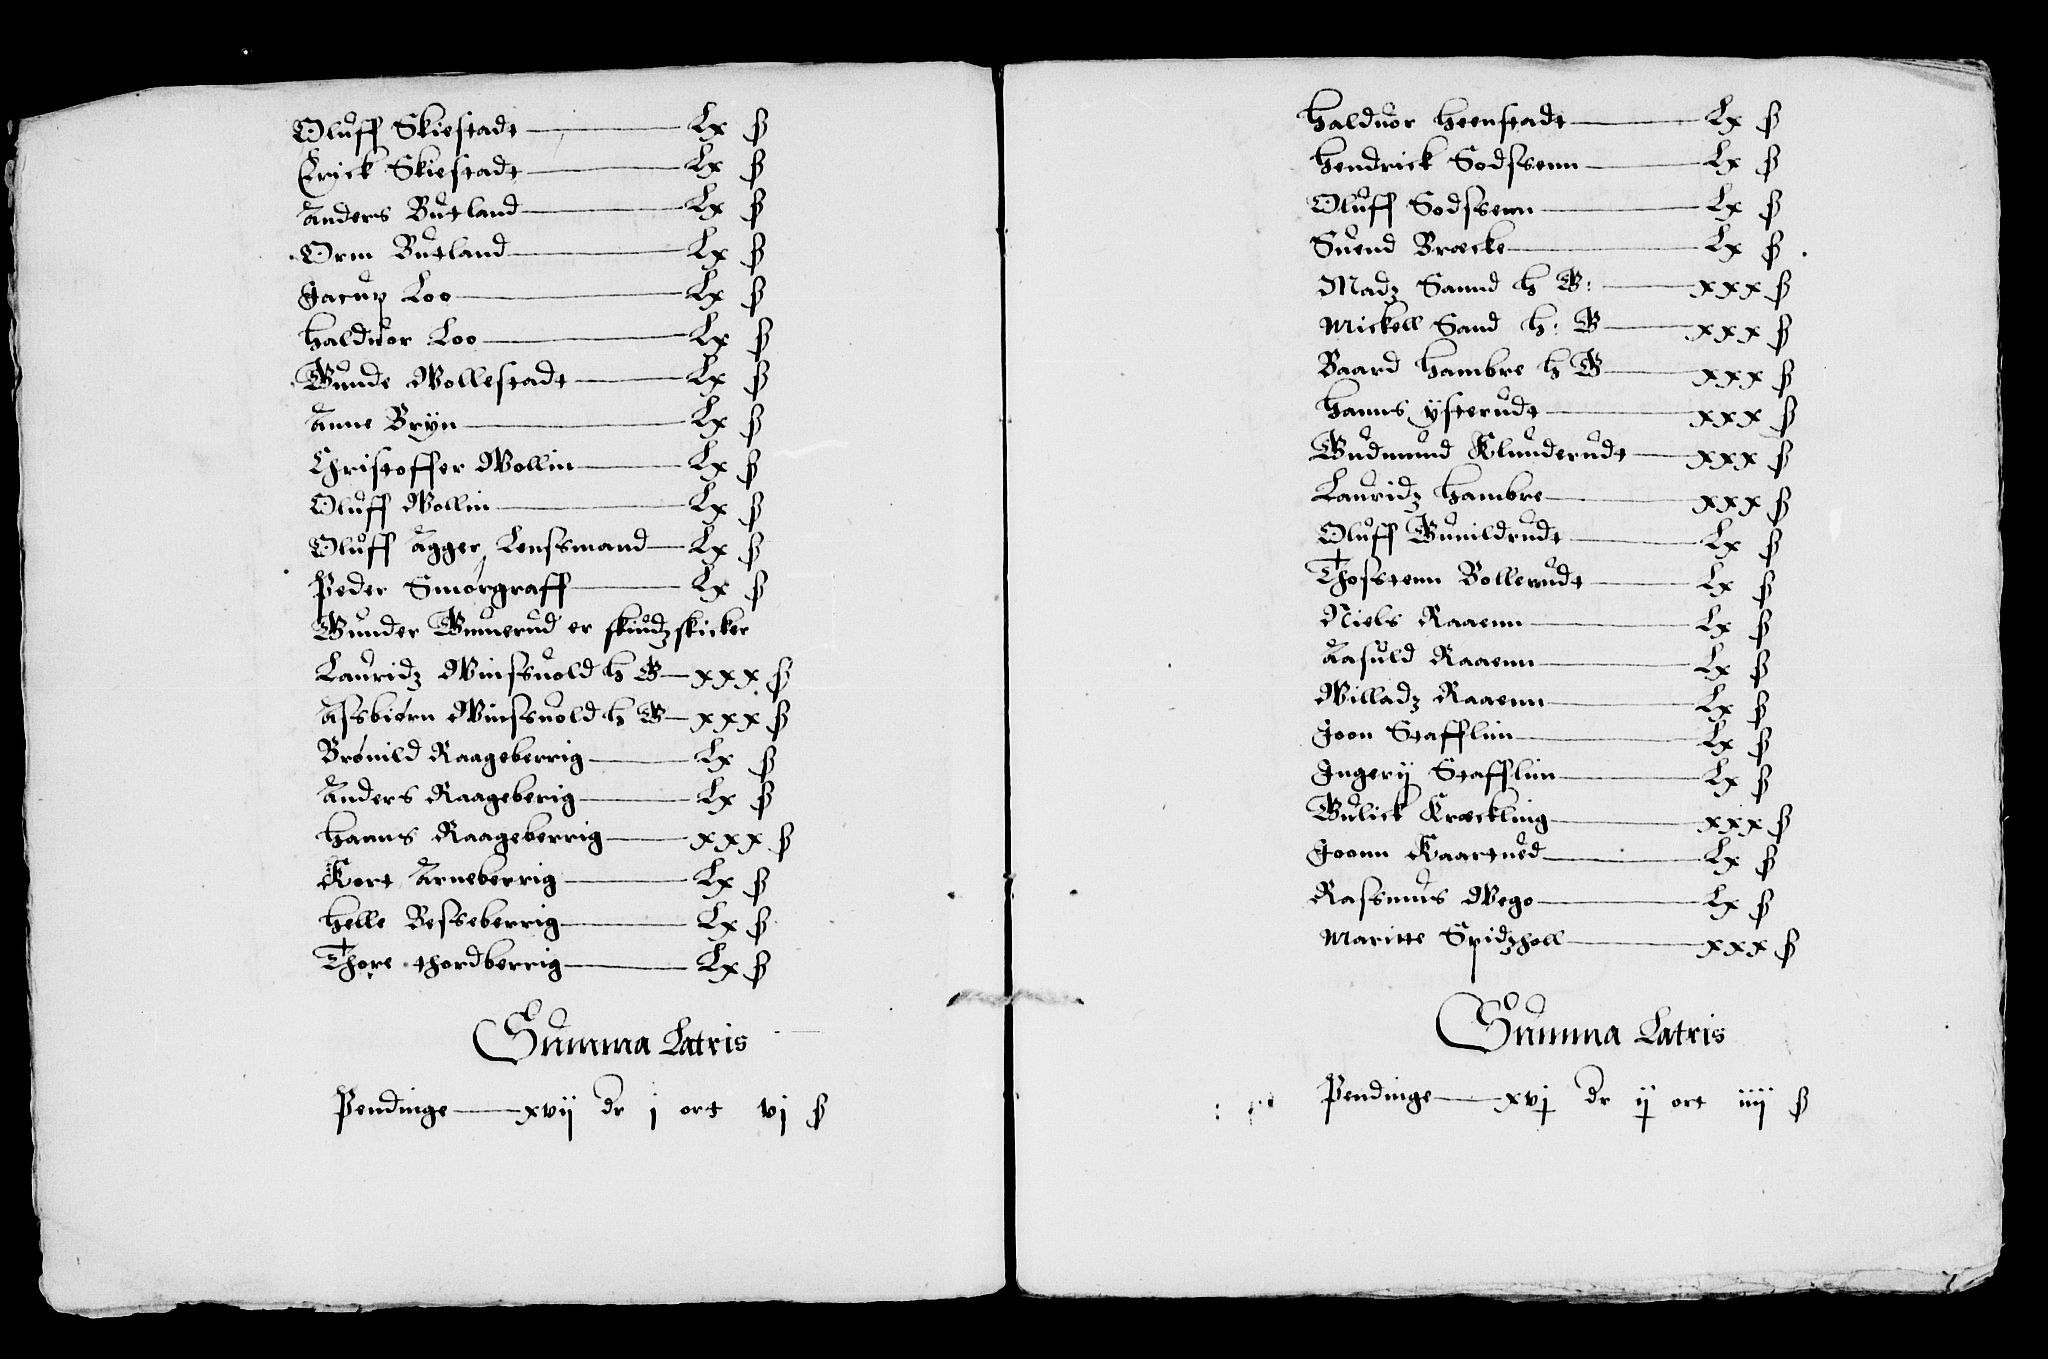 Oluff Skiestadt Lx ß
Erick Skiestadt Lx ß
Anders Butland Lx ß
Orm Butland Lx ß
Jacup Loo Lx ß
Halduor Loo Lx ß
Gunde Wollestadt Lx ß
Anne Bryn Lx ß
Christoffer Wollin Lx ß
Oluff Wollin Lx ß
Oluff Agger Lenssmand Lx ß
Peder Smørgraff Lx ß
Gunder Gunnerud er skiudzskicker
Lauridz Winssuold h G xxx ß
Assbiørn Winssuold h G xxx ß
Brønild Raageberrig Lx ß
Anders Raageberig Lx ß
Hanns Raageberrig xxx ß
Kort Arneberrig Lx ß
Helle Besseberrig Lx ß
Thore thordberrig Lx ß
Summa Latris
Pendinge xvij dr j ort vj ß
Halduor Heenstadt Lx ß
Hendrick Sodssenn Lx ß
Oluff Sodssenn Lx ß
Suend Bræcke Lx ß
Madz Sannd h G: xxx ß
Mickell Sand h: G xxx ß
Baard Hambre h G xxx ß
Hanns ÿsterudt xxx ß
Gudmund Klunderudt xxx ß
Lauridz Hambre xxx ß
Oluff Gunildrudt Lx ß
Thosstenn Bollerudt Lx ß
Niels Raaenn Lx ß
Aasuld Raaenn Lx ß
Willadz Raaenn Lx ß
Joon Stafflinn Lx ß
Ingerij Stafflinn Lx ß
Gulick Kræckling xxx ß
Joonn Kaartued Lx ß
Rassmus Wego Lx ß
Maritte Spidzholl xxx ß
Summa Latris
Pendinge xvj dr ij ort iiij ß